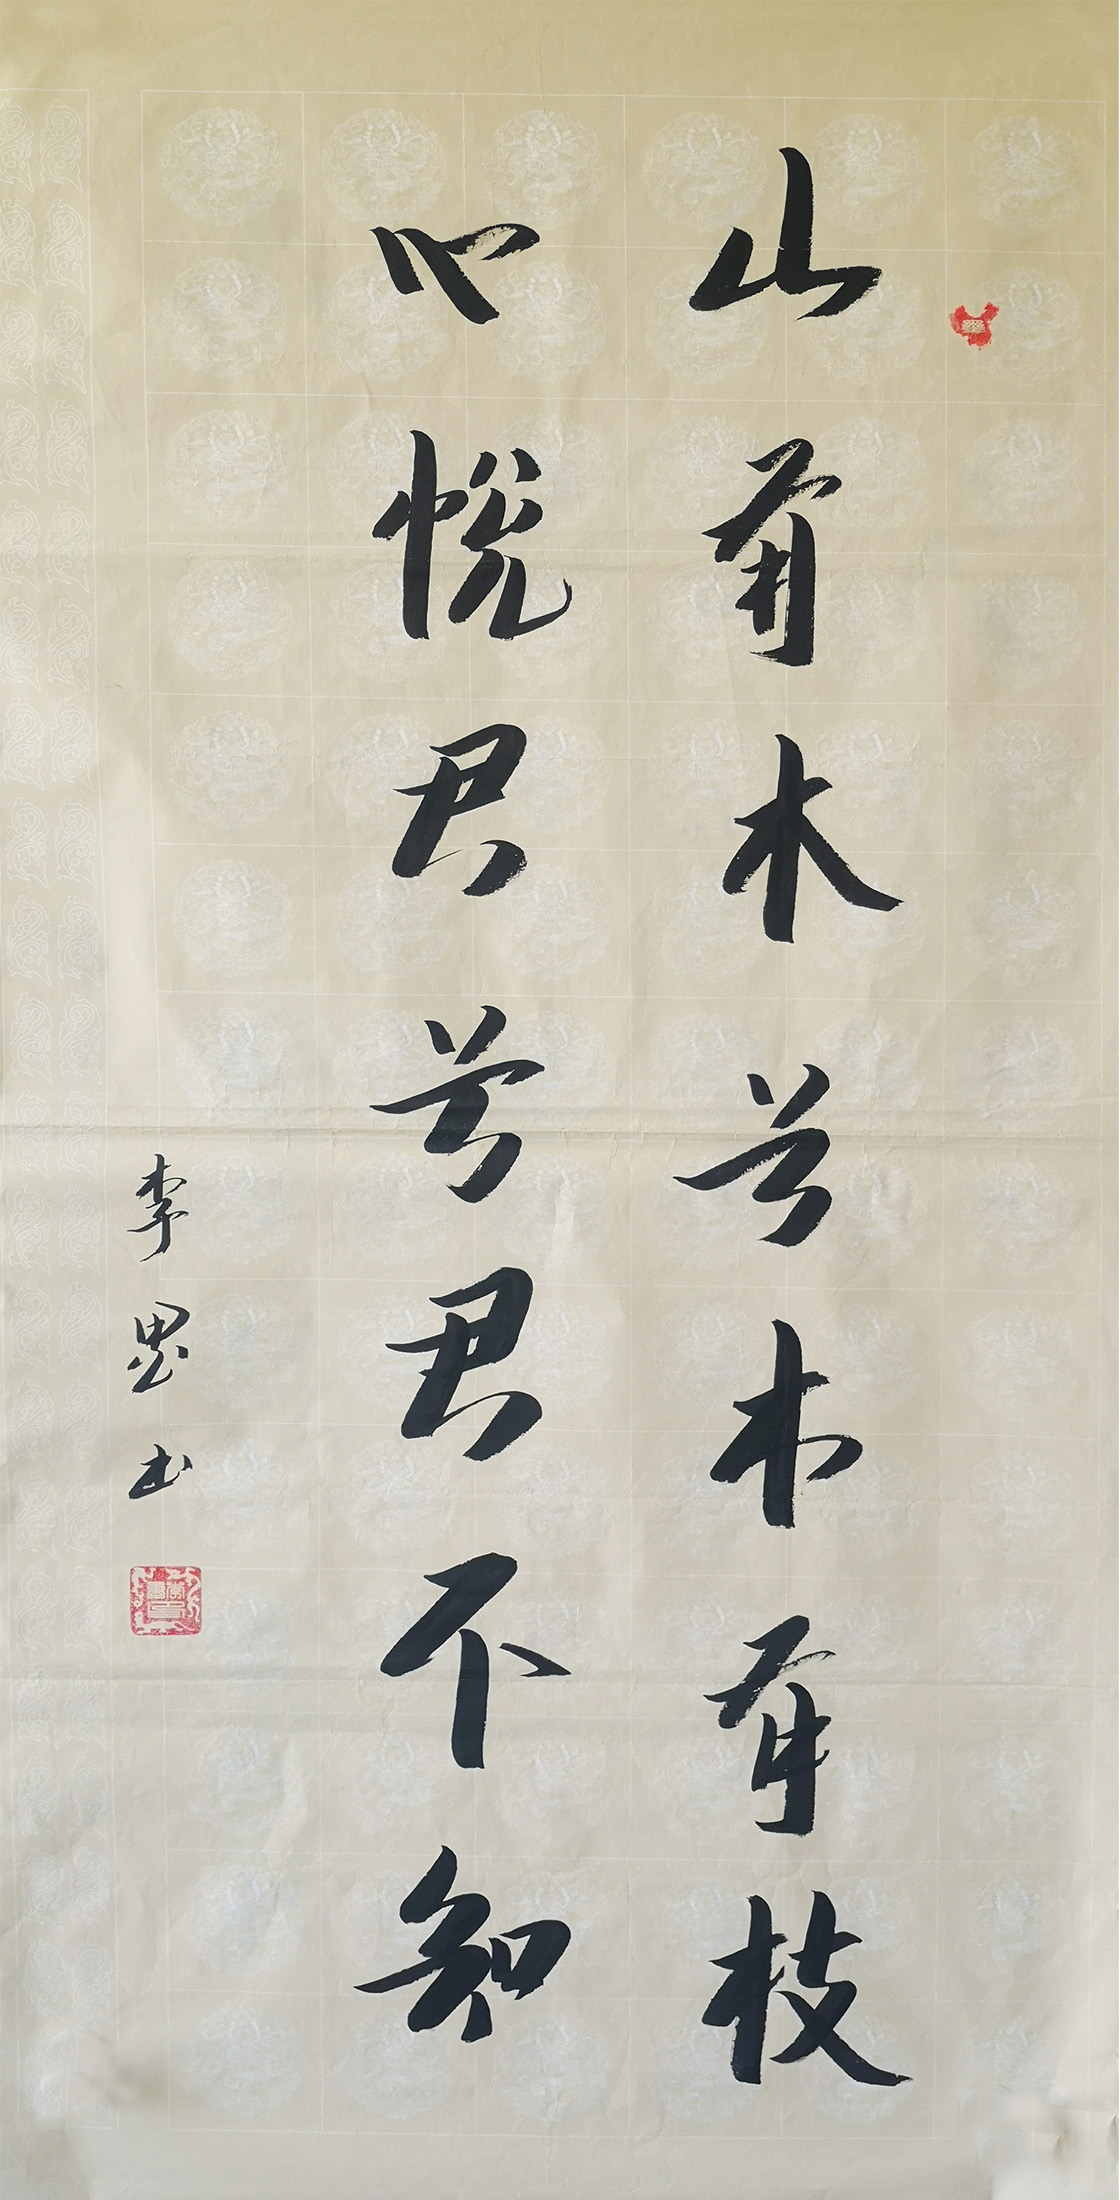 山有木兮木有枝
心悦君兮君不知
李书